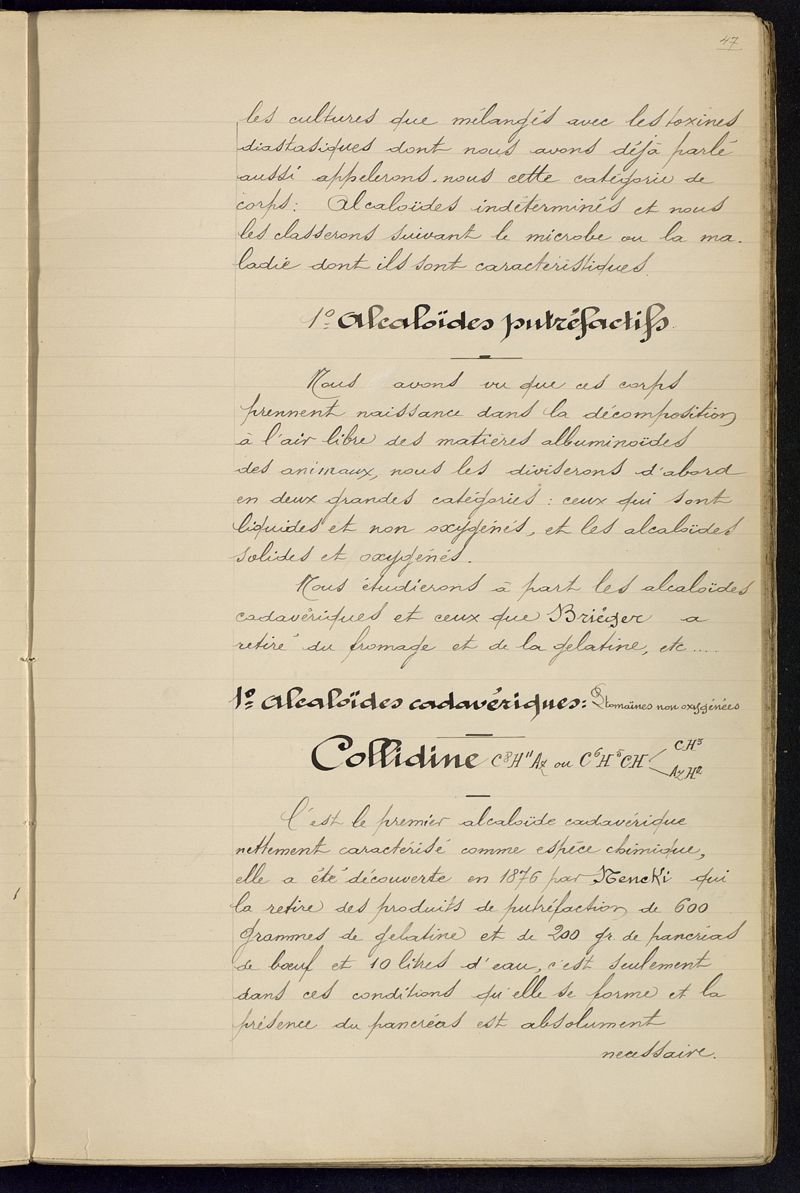 47
les cultures que mélangés avec les toxines
diastasiques dont nous avons déjà parlé
aussi appelerons-nous cette catégorie de
corps: Alcaloïdes indéterminés et nous
les classerons suivant le microbe ou la ma-
ladie dont ils sont caractéristiques.
1º Alcaloïdes putréfactifs.
Nous avons vu que ces corps
prennent naissance dans la décomposition
à l'air libre des matières albuminoïdes
des animaux, nous les diviserons d'abord
en deux grandes catégories : ceux qui sont
liquides et non oxygénés, et les alcaloïdes
solides et oxygénés.
Nous étudierons à part les alcaloïdes
cadavériques et ceux que Briéger a
retiré du fromage et de la gelatine, etc.....
1º Alcaloïdes cadavériques: Ptomaïnes non oxygénées
Collidine C⁸H¹¹Az ou C⁶H⁵CH CH³
AzH²
C'est le premier alcaloïde cadavérique
nettement caractérisé comme espèce chimique,
elle a été découverte en 1876 par Nencki qui
la retire des produits de putréfaction de 600
grammes de gelatine et de 200 gr. de pancréas
de bœuf et 10 litres d'eau, c'est seulement
dans ces conditions qu'elle se forme et la
présence du pancréas est absolument
necessaire.